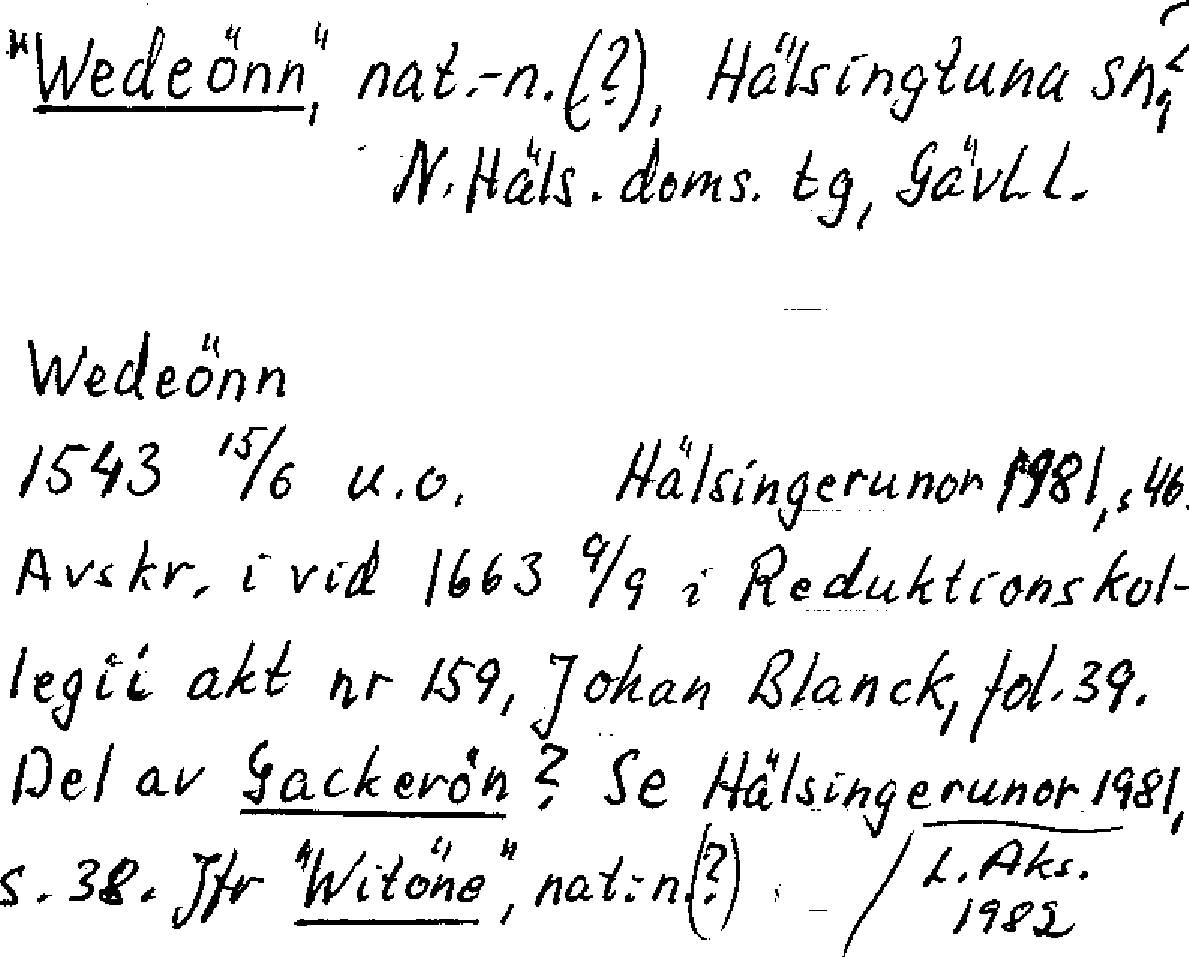 "Wedeönn", nat.-n.(?), Hälsingtuna sn,
N. Häls. doms. tg, Gävl. l.
Wedeönn
1543 15/6 u.o. Hälsingerunor 1981, s 46.
Avskr. i vid 1663 9/9 i Reduktionskol-
legii akt nr 159, Johan Blanck, fol. 39.
Del av Gackerön? Se Hälsingerunor 1981,
s. 38. Jfr "Witöne", nat.-n.(?)
L. Aks.
1982